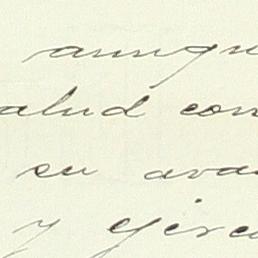 aunqu
alud con
su ava
y ejerc